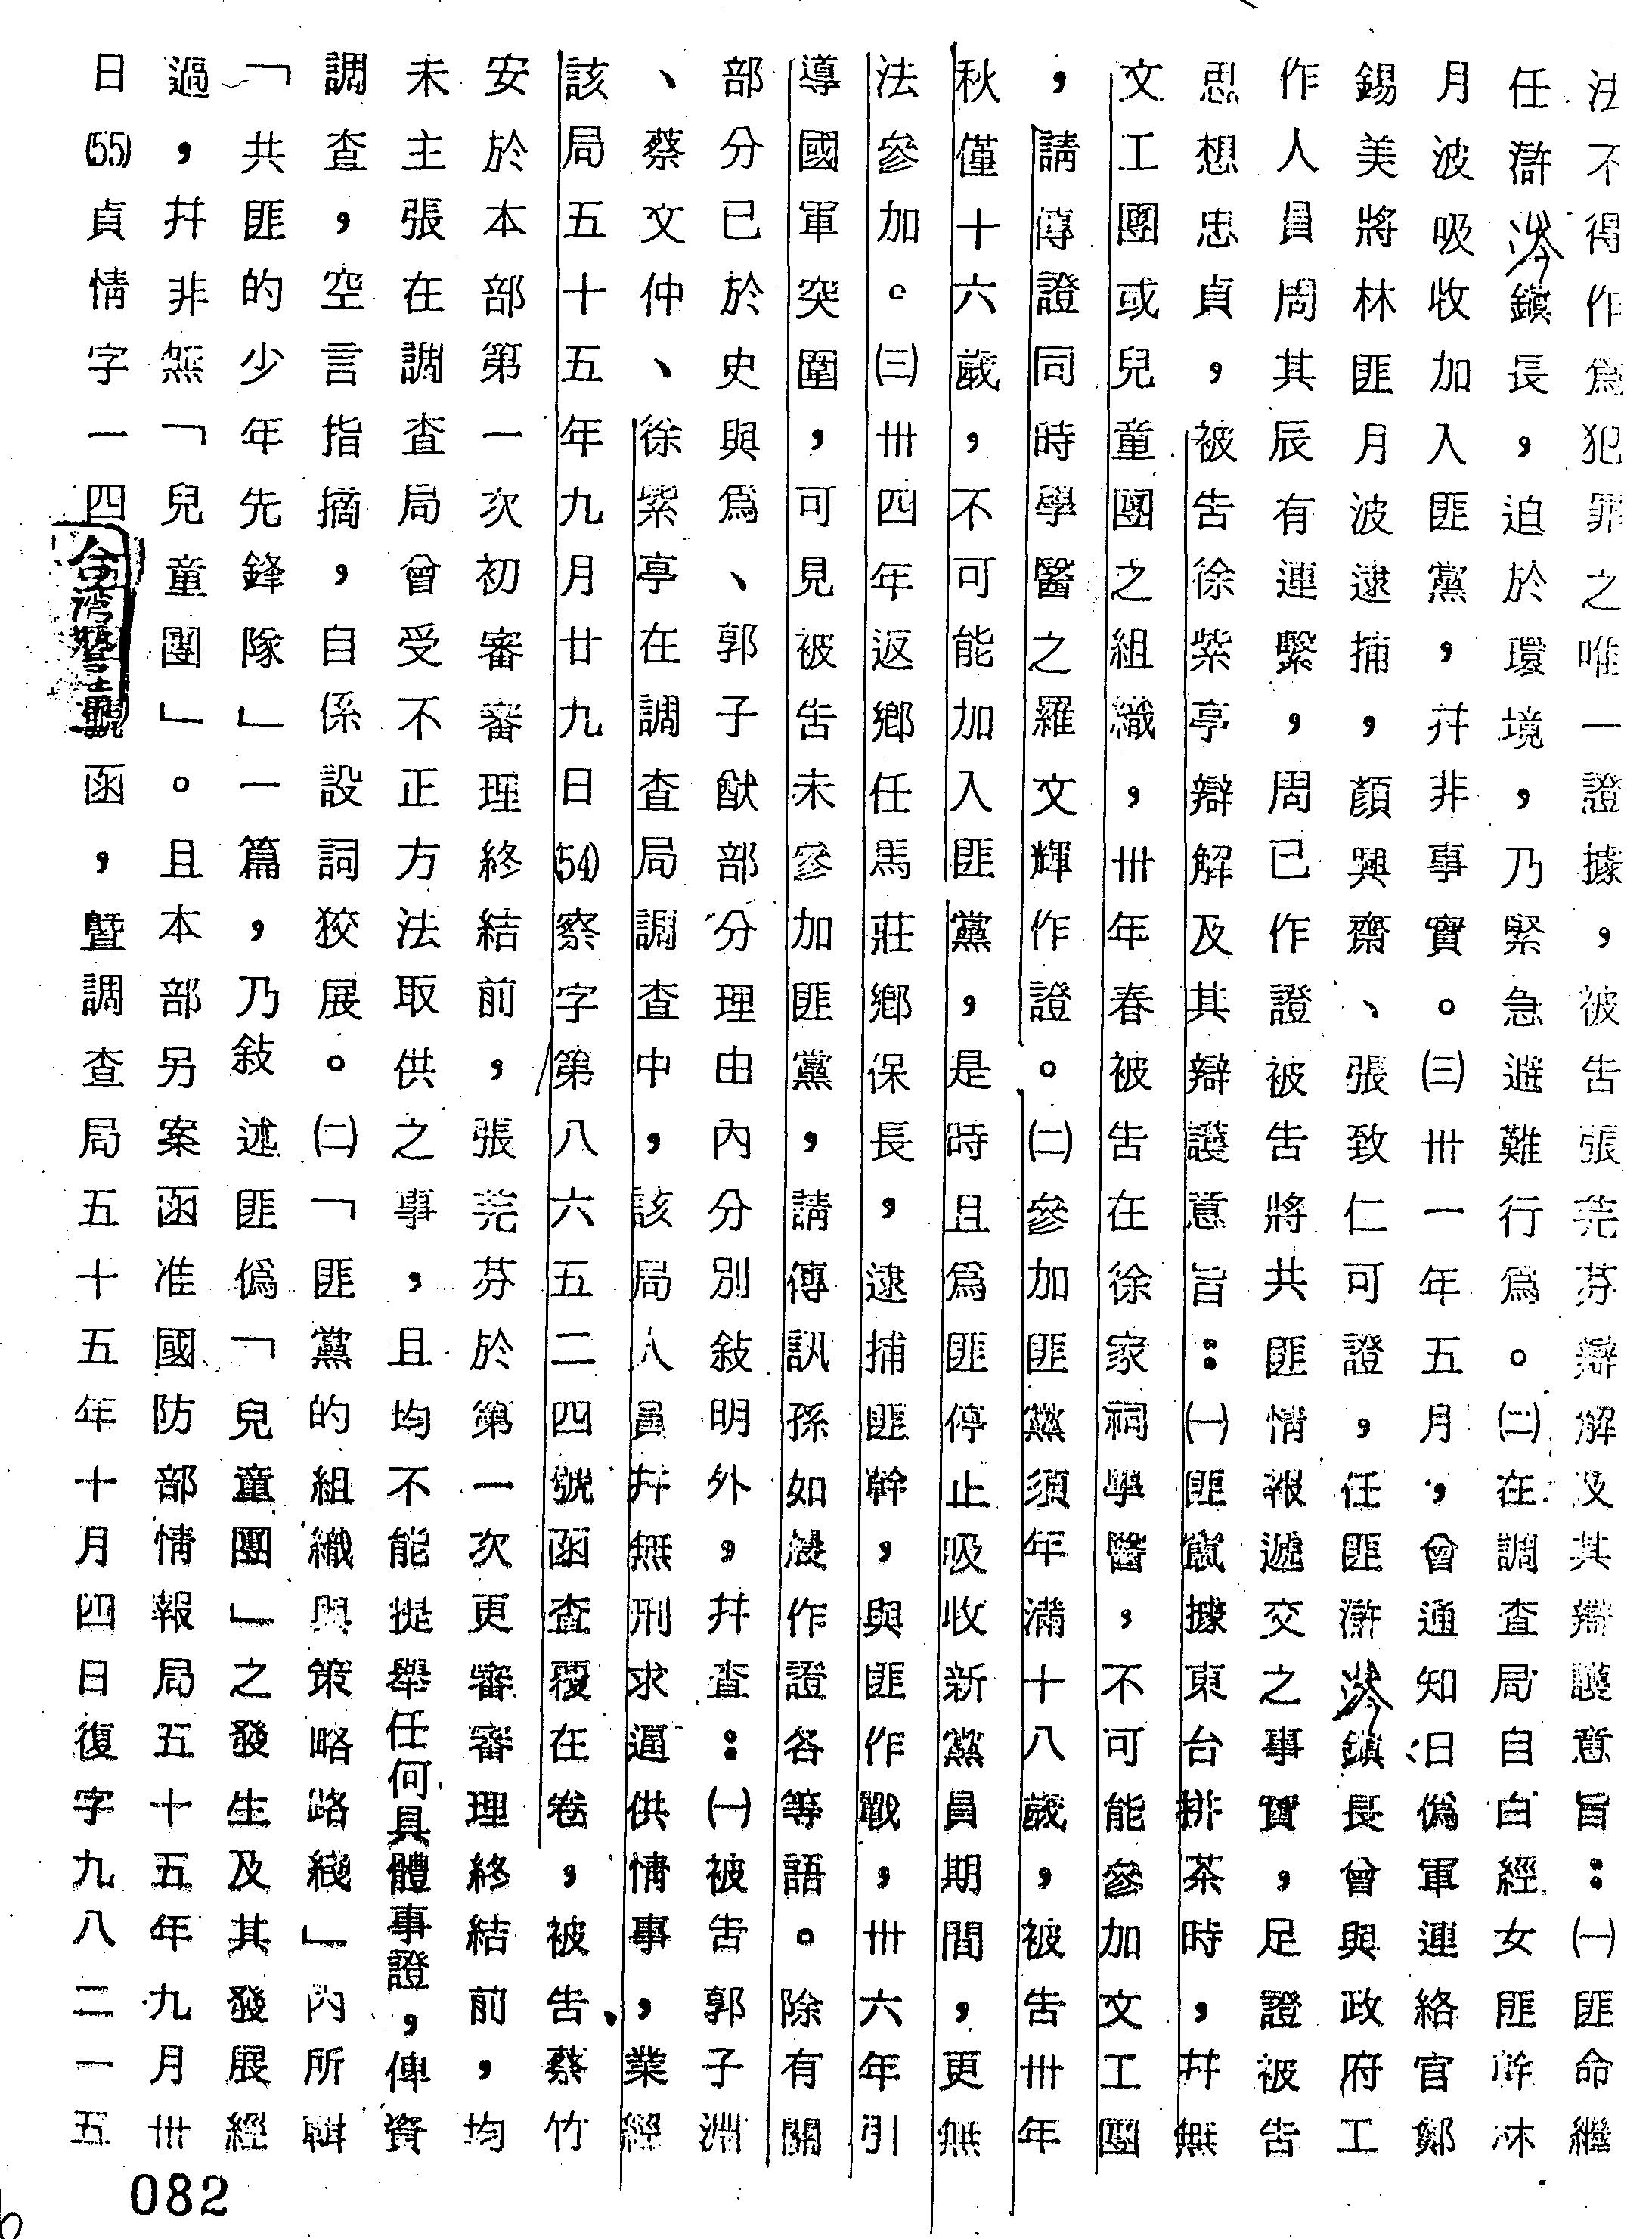 法不得作為犯罪之唯一證據，被告張莞芬辯解及其辯護意旨：㈠匪命繼
任滸澪鎮長，迫於環境，乃緊急避難行為。㈡在調查局自白經女匪幹林
月波吸收加入匪黨，幷非事實。㈢卅一年五月，曾通知汨偽軍連絡官鄭
錫美將林匪月波逮捕，顏興齋、張致仁可證，任匪滸澪鎮長曾與政府工
作人員周其辰有連繫，周已作證、被告將共匪情報遞交之事實，足證被告
思想忠貞，被告徐紫亭辯解及其辯護意旨：㈠匪黨據東台排茶時，幷無
文工團或兒童團之組織，卅年春被告在徐家祠學醫，不可能參加文工團
，請傳證同時學醫之羅文輝作證。㈡參加匪黨須年滿十八歲，被告卅年
秋僅十六歲，不可能加入匪黨，是時且為匪停止吸收新黨員期間，更無
法參加。㈢卅四年返鄉任馬莊鄉保長，逮捕匪幹，與匪作戰，卅六年引
導國軍突圍，可見被告未參加匪黨，請傳訊孫如晟作證各等語。除有關
部分已於史與為、郭子猷部分理由內分別敍明外，幷查：㈠被告郭子淵
、蔡文仲、徐紫亭在調查局調查中，該局人員幷無刑求逼供情事，業經
該局五十五年九月廿九日(54)察字第八六五二四號函查覆在卷，被告蔡竹
安於本部第一次初審審理終結前，張莞芬於第一次更審審理終結前，均
未主張在調查局曾受不正方法取供之事，且均不能提舉任何具體事證，俾資
調查，空言指摘，自係設詞狡展。㈡「匪黨的組織與策略路綫」內所輯
「共匪的少年先鋒隊」一篇，乃敍述匪偽「兒童團」之發生及其發展經
過，幷非無「兒童團」。且本部另案函准國防部情報局五十五年九月卅
日(55)貞情字一四號函，暨調查局五十五年十月四日復字九八二一五
082